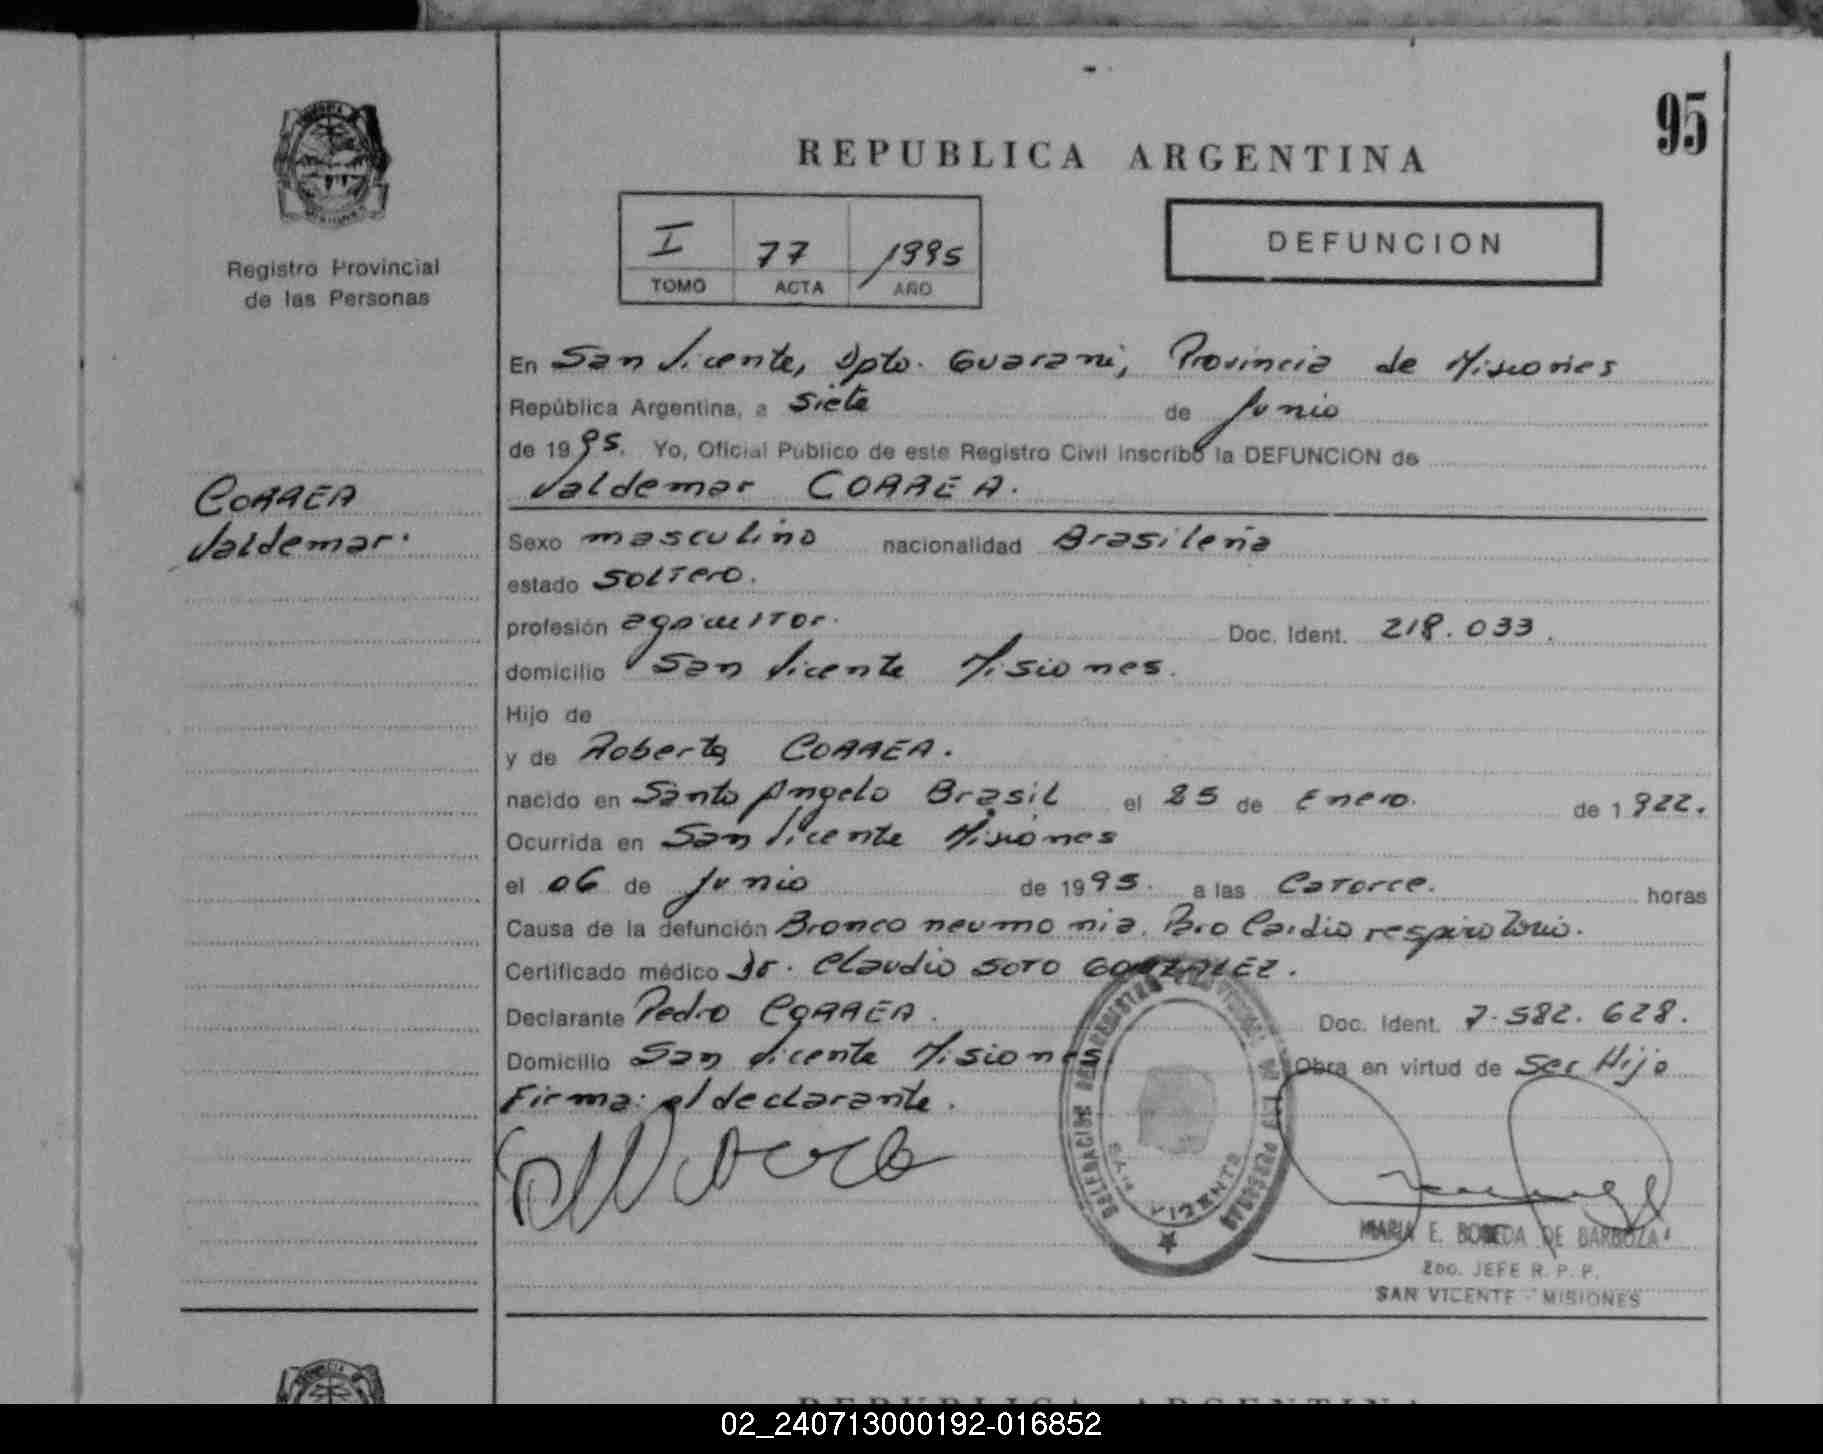 95
REPUBLICA ARGENTINA
I 77 1995
TOMO ACTA AÑO
DEFUNCION
Registro Provincial
de las Personas
CORREA
Valdemar.
En San Vicente, Dpto. Guarani, Provincia de Misiones
República Argentina, a siete de Junio
de 1995. Yo, Oficial Público de este Registro Civil inscribo la DEFUNCION de
Valdemar CORREA.
Sexo masculino nacionalidad Brasileña
estado soltero.
profesión agricultor. Doc. Ident. 218.033.
domicilio San Vicente Misiones.
Hijo de
y de Roberta CORREA.
nacido en Santo Angelo Brasil el 25 de Enero. de 1922.
Ocurrida en San Vicente Misiones
el 06 de Junio de 1995. a las Catorce. horas
Causa de la defunción Bronco neumonia. Paro Cardio respiratorio.
Certificado médico Dr. Claudio SOTO GONZALEZ.
Declarante Pedro CORREA. Doc. Ident. 7.582.628.
Domicilio San Vicente Misiones Obra en virtud de ser Hijo
Firma: el declarante.
DELEGACION DEL REGISTRO PROVINCIAL DE LAS PERSONAS
SAN VICENTE
MARIA E. BOBEDA DE BARBOZA
2do. JEFE R. P. P.
SAN VICENTE - MISIONES
REPUBLICA ARGENTINA
02_240713000192-016852